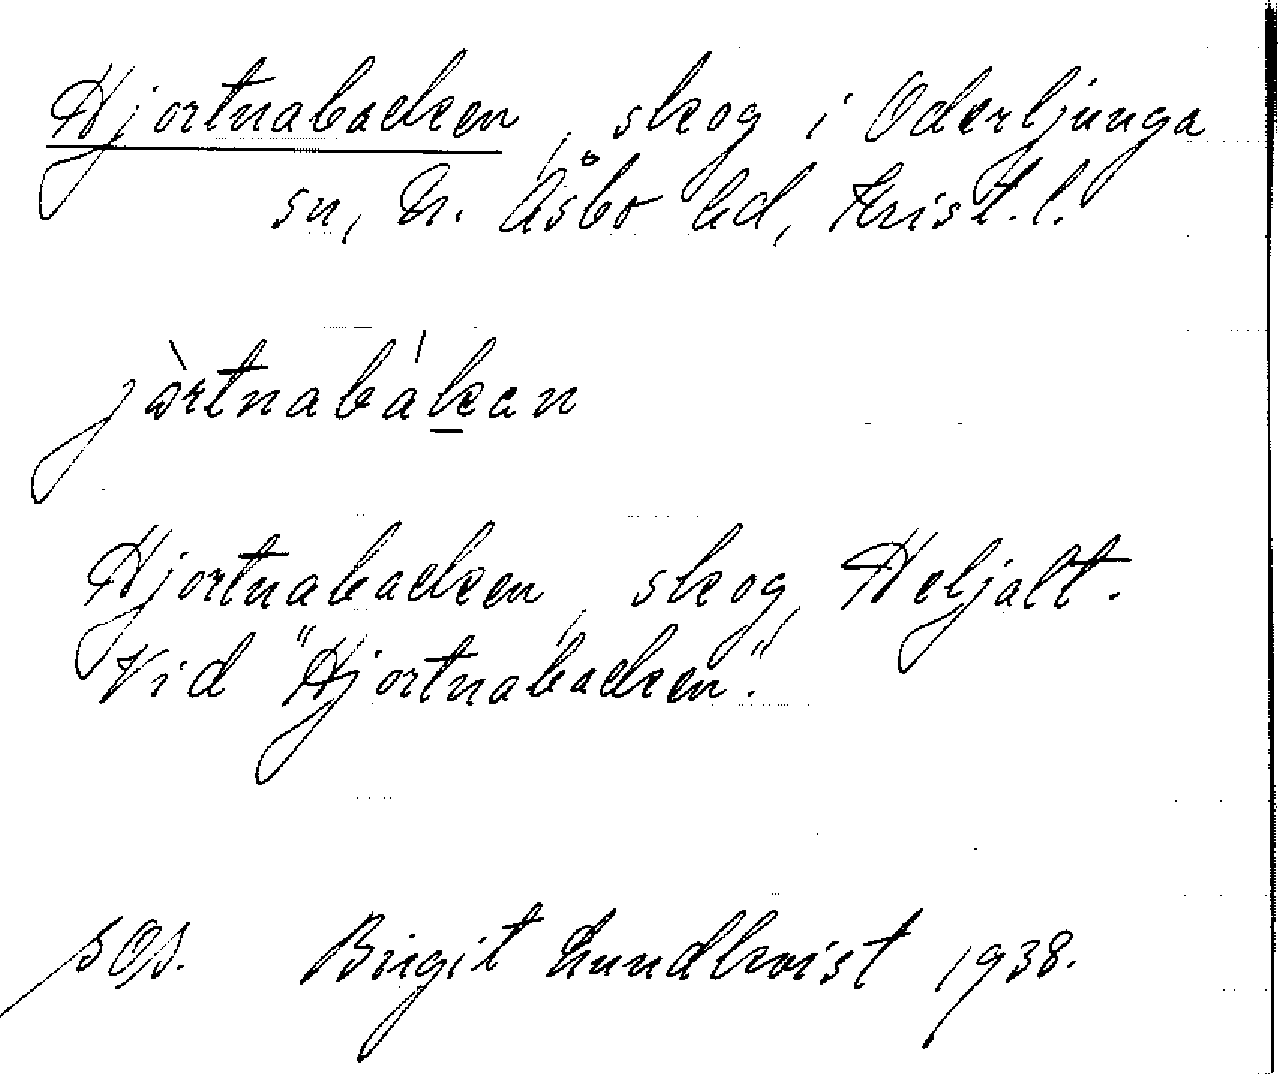 Hjortnabacken, skog i Oderljunga
sn, N. Åsbo hd, Krist. l.
jòrtnabákan
Hjortnabacken, skog, Heljalt.
Vid "Hjortnabacken".
Birgit Lundkvist 1938.